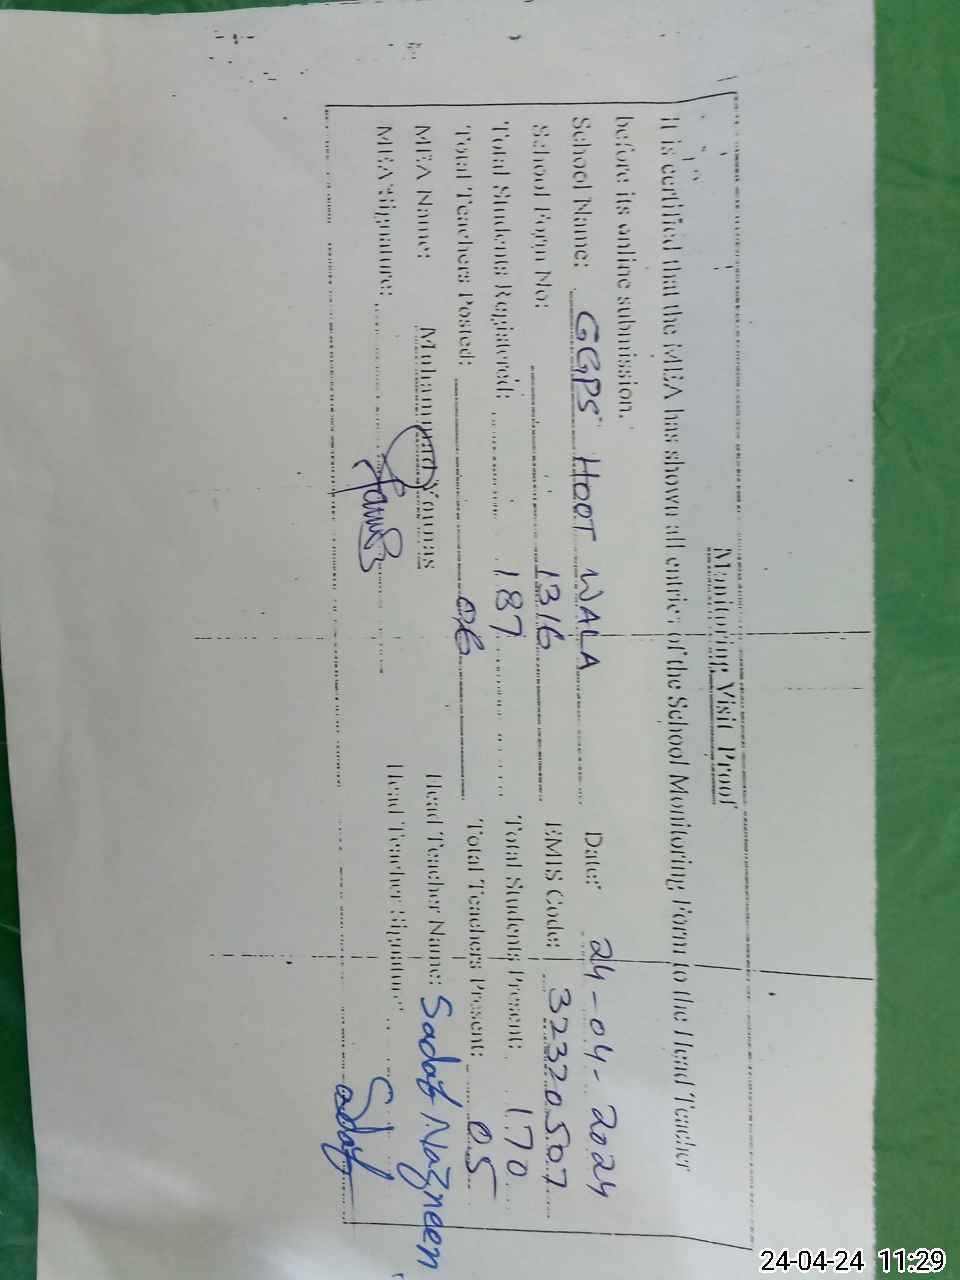 Monitoring Visit Proof
It is certified that the MEA has shown all entries of the School Monitoring Form to the Head Teacher
before its online submission.
School Name: GGPS HOOT WALA Date: 24-04-2024
School Form No: 1316 EMIS Code: 32320507
Total Students Registered: 187 Total Students Present: 170
Total Teachers Posted: 06 Total Teachers Present: 05
MEA Name: Muhammad Younas Head Teacher Name: Sadaf Nazneen
MEA Signature: Head Teacher Signature: Sadaf
24-04-24 11:29